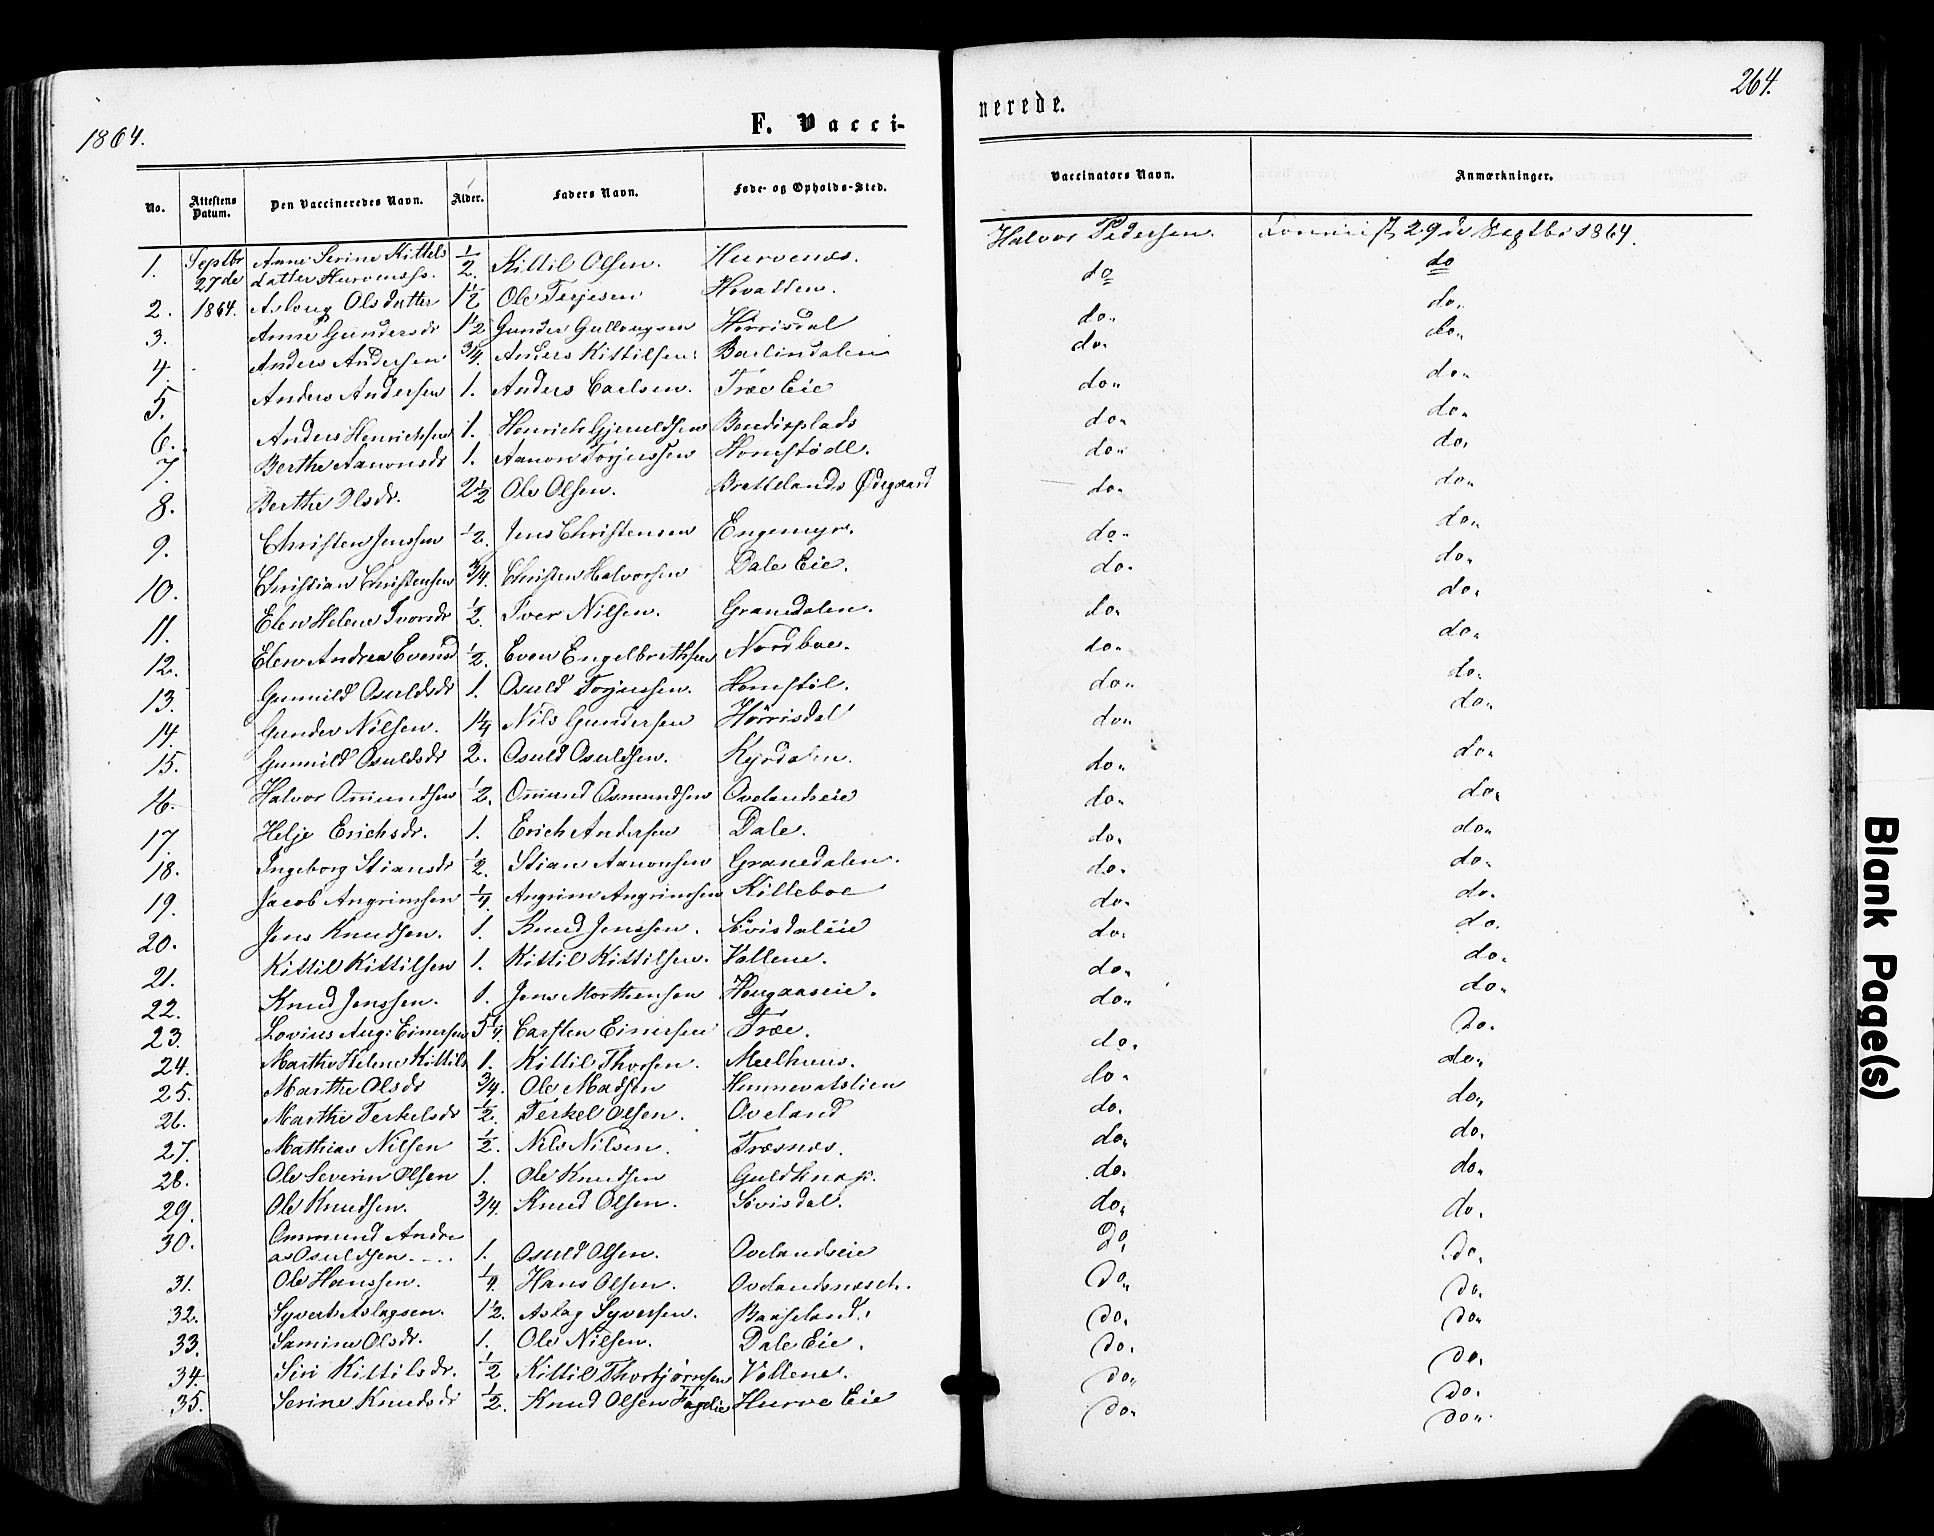 1864.
F. Vacci-
nerede.
264.
No. Attestens Datum. Den Vaccineredes Navn. Alder. Faders Navn. Føde- og Opholds-Sted. Vaccinators Navn. Anmærkninger.
1. Septbr 27de Anne Serine Kittels datter Hurvenæss. 1/2. Kittil Olsen. Hurvenæs. Halvor Pedersen. 29de Septbr 1864.
2. 1864. Aslaug Olsdatter 1 1/2 Ole Terjesen Hovatten. do do
3. Anne Gundersdr 1 1/2 Gunder Gullaugsen Hörrisdal do. do.
4. Anders Andersen 3/4. Anders Kittilsen. Barlindalen do. do.
5. Anders Andersen 1. Anders Carlsen. Træ Eie do. do.
6. Anders Henrichsen 1. Henrich Gjeruldsen Bendixplads do. do.
7. Berthe Aanonsdr 1. Aanon Torjussen Homstödl. do. do.
8. Berthe Olsdr. 2 1/2 Ole Olsen. Brettelands Ødegaard do. do.
9. Christen Jenssen 1/2. Jens Christensen Engemyr. do. do.
10. Christian Christensen 3/4. Christen Halvorsen Dale Eie. do. do.
11. Elen Helene Iversdr 1/2. Iver Nilsen. Granedalen. do. do.
12. Elen Andrea Evensd 1/2. Even Engelbrethsen Nordboe. do. do.
13. Gunnild Osuldsdr 1. Osuld Torjussen. Homstöl. do. do.
14. Gunder Nilsen. 1 1/4 Nils Gundersen Hörrisdal do. do.
15. Gunnild Osuldsdr 2. Osuld Osuldsen. Kyrdalen. do. do.
16. Halvor Omundsen 1/2. Omund Osmundsen Ovelandseie do. do.
17. Helje Erichsdr. 1. Erich Andersen Dale. do. do.
18. Ingeborg Stiansdr 1/2. Stian Aanonsen Granedalen. do. do.
19. Jacob Angrimsen 1/4. Angrim Angrimsen Killeboe do. do.
20. Jens Knudsen. 1. Knud Jenssen. Sövisdaleie do. do.
21. Kittil Kittilsen 1. Kittil Kittilsen. Vollene. do. do.
22. Knud Jenssen. 1. Jens Morthensen Hougaaseie. do. do.
23. Lovius Aug: Einersen 5 1/4. Carsten Einersen Træ. do. do.
24. Marthe Helene Kittils 1. Kittil Thorsen. Mælhuus. do. do.
25. Marthe Olsdr 3/4. Ole Madsen Hunnevatslien do. do.
26. Marthe Terkelsdr 1/2. Terkel Olsen. Oveland do. do.
27. Mathias Nilsen 1/2. Nils Nilsen. Træsnæs. do. do.
28. Ole Severin Olsen 1. Ole Knudsen Guldknap. do. do.
29. Ole Knudsen. 3/4. Knud Olsen. Sövisdal. do. do.
30. Ommund Andre as Osuldsen.... 1. Osuld Olsen. Ovelandseie do. do.
31. Ole Hanssen. 1/4. Hans Olsen. Ovelandsnæset. do. do.
32. Syvert Aslagsen. 1 1/2. Aslag Syversen. Baaseland. do. do.
33. Samine Olsdr. 1. Ole Nilsen. Dale Eie. do. do.
34. Siri Kittilsdr. 1/2 Kittil Thorbjörnsen Vollene. do. do.
35. Serine Knudsdr 1/2. Knud Olsen Fagelie Hurve Eie do. do.
Blank Page(s)